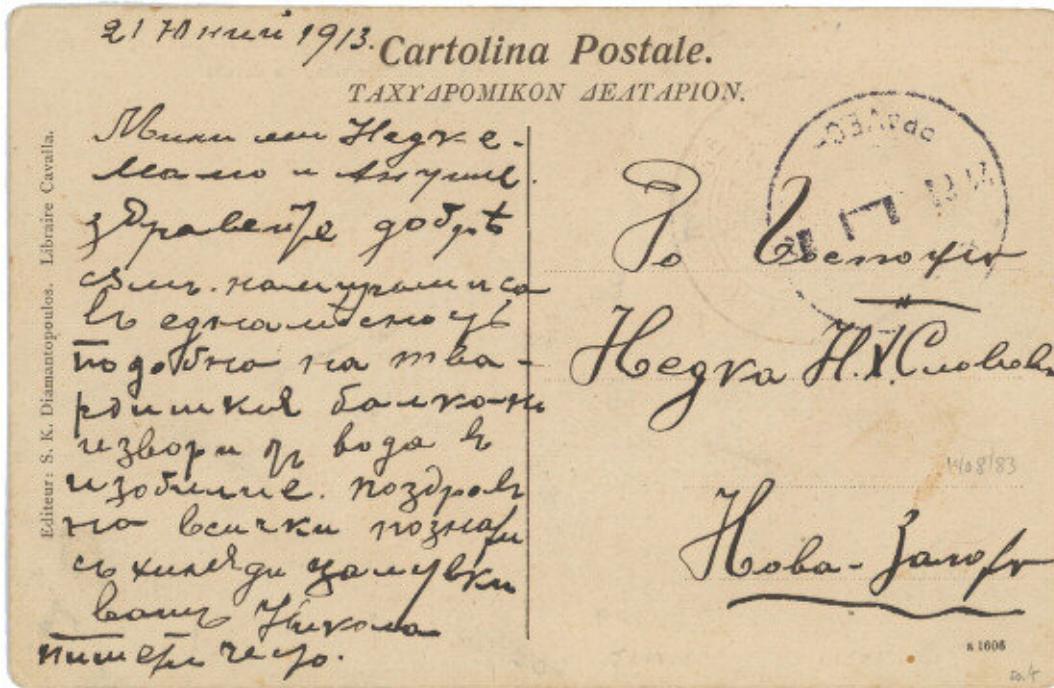 21 Юний 1913.
Cartolina Postale.
ΤΑΧΥΔΡΟΜΙΚΟΝ ΔΕΛΤΑΡΙΟΝ.
Editeur: S. K. Diamantopoulos. Libraire Cavalla.
Мики ми Недке.
Мамо и Анушке.
здравейте добрѣ
съмъ. намирамиса
въ една мѣсность
подобна на тва-
рдишкия балкань
извори съ вода въ
изобилие. поздравъ
на всички познати
съ хиляди цалувки
вашъ Никола
пишете често.
До Госпожа
Недка Н. Х. Славова
Нова-Загора
1408/83
в 1606